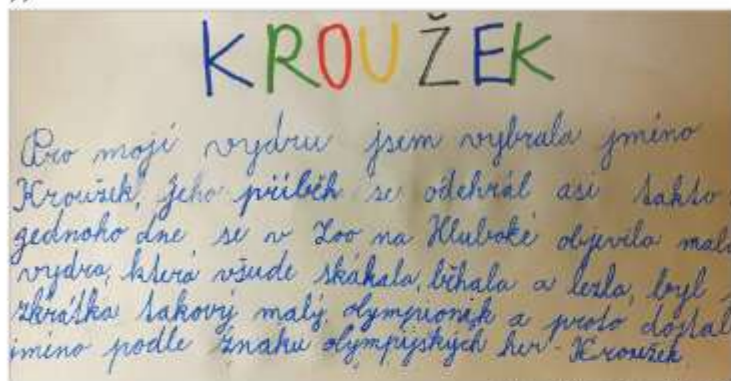 KROUŽEK
Pro moji vydru jsem vybrala jméno
Kroužek, jeho příběh se odehrál asi takto
jednoho dne se v Zoo na Hluboké objevila malá
vydra, která všude skákala, běhala a lezla, byl
zkrátka takový malý olympionik a proto dostal
jméno podle znaku olympijských her - Kroužek.